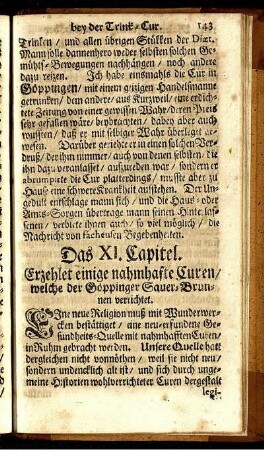 bey der Trink-Cur. 143
Trinken / und allen übrigen Stükken der Diæt.
Mann solle dannenhero weder selbsten solchen Ge-
mühts-Bewegungen nachhängen / noch andere
dazu reizen. Ich habe einsmahls die Cur in
Göppingen / mit einem geizigen Handelsmann
getrunken / dem andere / aus Kurzweil / eine erdich-
tete Zeitung von einer gewissen Wahr / deren Preis
sehr gefallen wäre / beybrachten / dabey aber auch
wußten / daß er mit selbiger Wahr überlegt ge-
wesen. Darüber geriehte er in einen solchen Ver-
druß / der ihn nimmer / auch von denen selbsten / die
ihn dazu veranlasset / auszureden war / sondern er
abrumpirte die Cur platterdings / mußte aber zu
Hauß eine schwere Krankheit ausstehen. Der Un-
gedult entschlage mann sich / und die Hauß- oder
Amts-Sorgen übertrage mann seinen Hinterlas-
senen / verbiete ihnen auch / so viel möglich / die
Nachricht von Begebenheiten.
Das XI. Capitel.
Erzehlet einige nahmhafte Curen /
welche der Göppinger Sauer-Brun-
nen verrichtet.
Eine neue Religion muß mit Wunderwer-
cken bestättiget / eine neu-erfundene Ge-
sundheits-Quelle mit nahmhafften Curen /
in Ruhm gebracht werden. Unsere Quelle hatt
dergleichen nicht vonnöthen / weil sie nicht neu /
sondern undencklich alt ist / und sich durch unge-
meine Historien wohlverrichteter Curen dergestalt
legi-